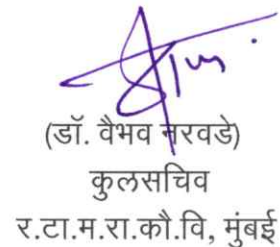 (डॉ. वैभव नरवडे)
कुलसचिव
र.टा.म.रा.कौ.वि, मुंबई